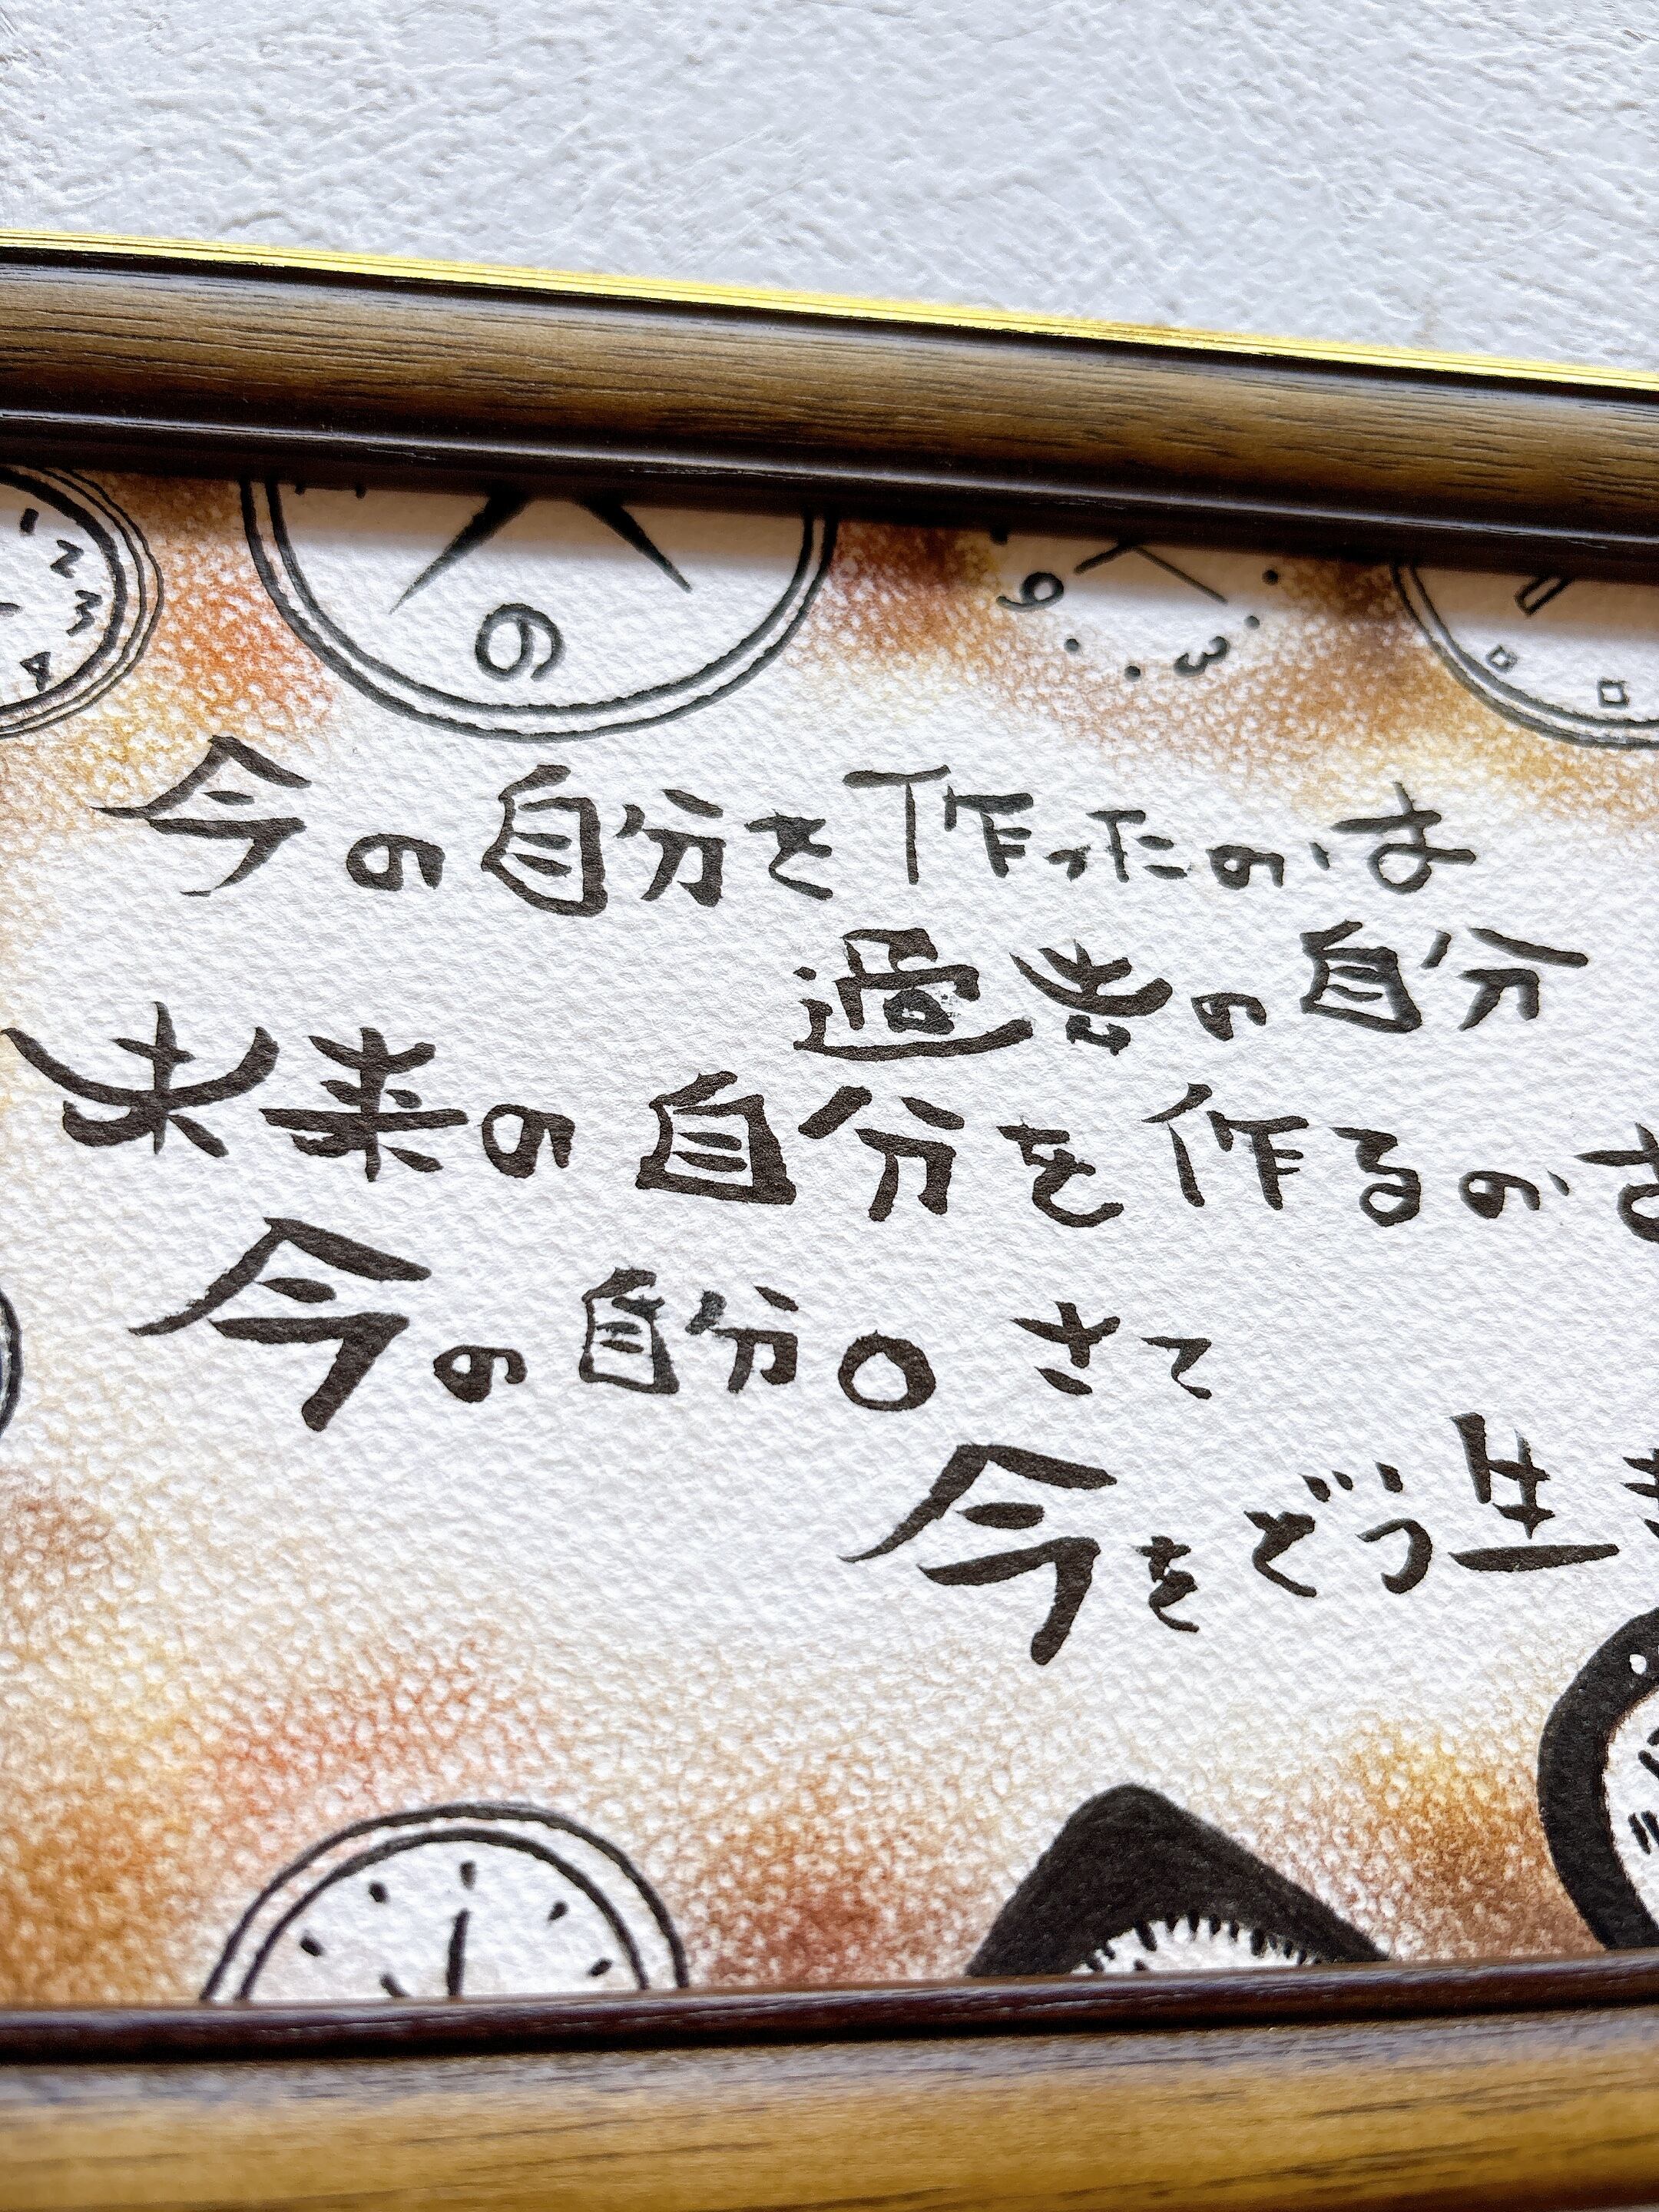 6
9
3
今の自分を作ったのは
過去の自分
未来の自分を作るのは
今の自分。さて
今をどう生き